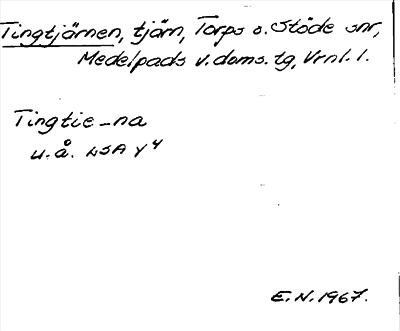 Tingtjärnen, tjärn, Torps o. Stöde snr,
Medelpads v. doms. tg, Vrnl. l.
Tingtie-na
u. å. LSA Y 4
E. N. 1967.